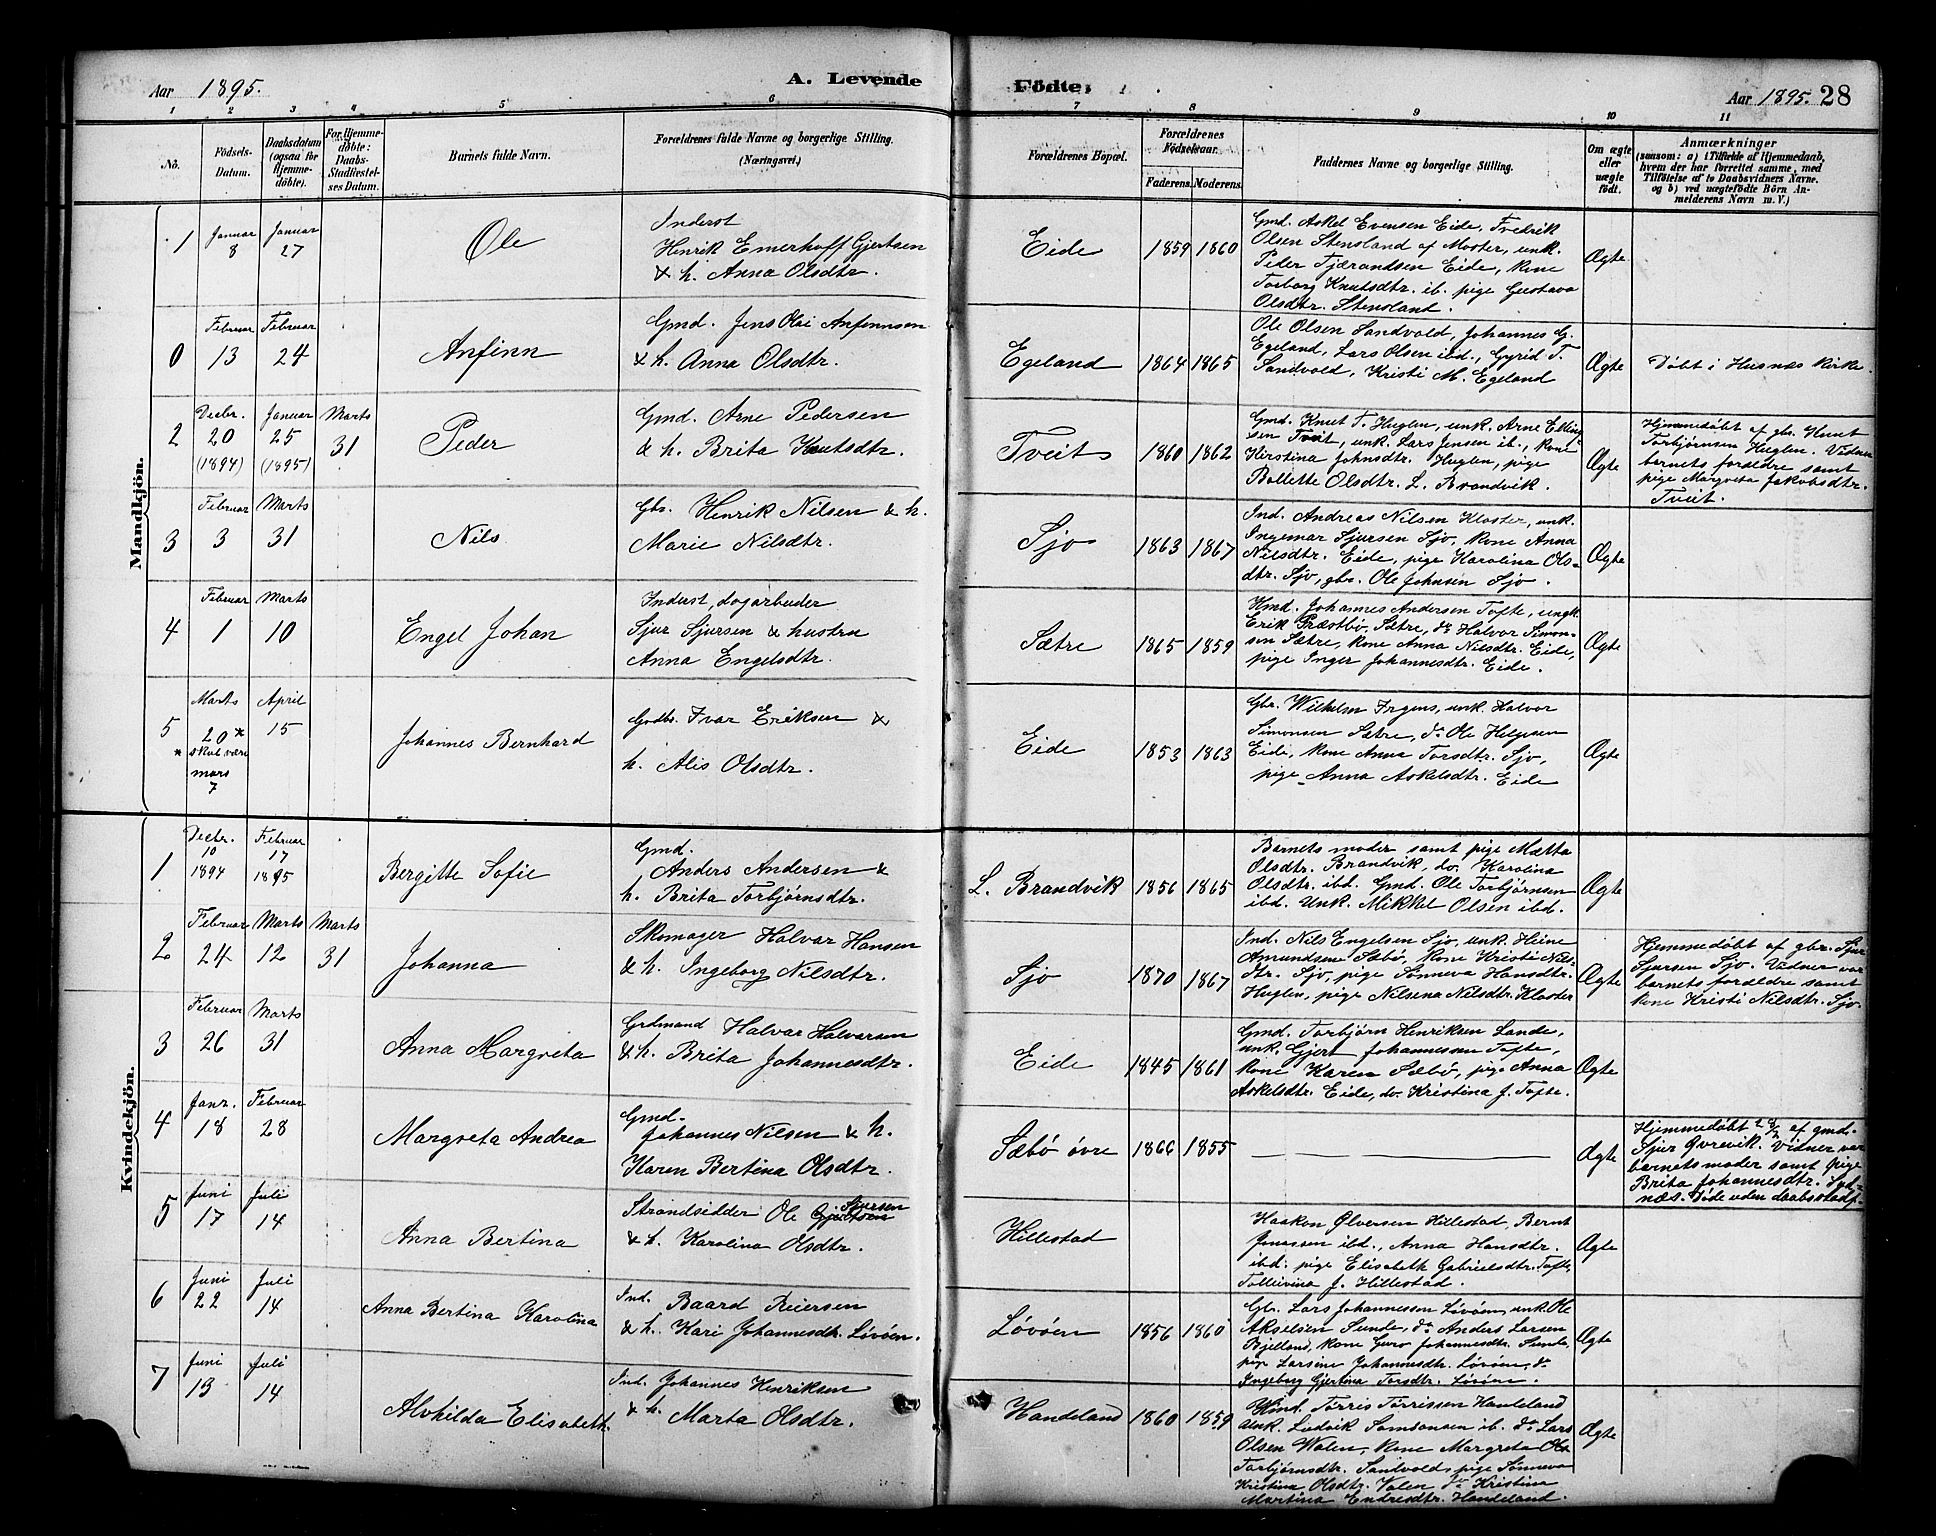 Aar 1895.
A. Levende Födte.
Aar 1895. 28
1 2 3 4 5 6 7 8 9 10 11
No.
Födsels-Datum.
Daabsdatum (ogsaa for Hjemme-døbte).
For Hjemme-døbte: Daabs-Stadfæstel-ses Datum.
Barnets fulde Navn.
Forældrenes fulde Navne og borgerlige Stilling.
(Næringsvei.)
Forældrenes Bopæl.
Forældrenes Födselsaar.
Faderens. Moderens.
Faddernes Navne og borgerlige Stilling.
Om ægte eller uægte født.
Anmærkninger
(saasom: a) i Tilfælde af Hjemmedaab,
hvem der har forrettet samme, med
Tilføielse af to Daabsvidners Navne.
og b) ved uægtefödte Börn An-
melderens Navn m. V.)
Mandkjön.
1
Januar 8
Januar 27
Ole
Inderst
Henrik Emerhoff Gjertsen
& h. Anna Olsdtr.
Eide
1859 1860
Gmd. Askel Evensen Eide, Fredrik
Olsen Stensland af Moster, unk.
Peder Tjærandsen Eide, kone
Torborg Knutsdtr. ib. pige Gustava
Olsdtr. Stensland.
Ægte
0
Februar 13
Februar 24
Anfinn
Gmd. Jens Olai Anfinnsen
& h. Anna Olsdtr.
Egeland
1864 1865
Ole Olsen Sandvold, Johannes G.
Egeland, Lars Olsen ibd., Gyrid T.
Sandvold, Kristi M. Egeland
Ægte
Döbt i Husnæs Kirke.
2
Decbr. 20 (1894)
Januar 25 (1895)
Marts 31
Peder
Gmd. Arne Pedersen
& h. Brita Knutsdtr.
Tveit
1860 1862
Gmd. Knut T. Huglen, unk. Arne Elling
sen Tveit, unk. Lars Jensen ib., kone
Kirstina Johnsdtr. Huglen, pige
Bollette Olsdtr. L. Brandvik.
Ægte
Hjemmedøbt af gbr. Knut
Torbjørnsen Huglen. Vidner
barnets forældre samt
pige Margreta Jakobsdtr.
Tveit.
3
Februar 3
Marts 31
Nils
Gbr. Henrik Nilsen & h.
Marie Nilsdtr.
Sjo
1863 1867
Ind. Andreas Nilsen Kloster, unk.
Ingemar Sjursen Sjo, kone Anna
Nilsdtr. Eide, pige Karolina Ols-
dtr. Sjo, gbr. Ole Johnsen Sjo.
Ægte
4
Februar 1
Marts 10
Engel Johan
Inderst, dagarbeider
Sjur Sjursen & hustru
Anna Engelsdtr.
Sætre
1865 1859
Hmd. Johannes Andersen Tofte, ungk.
Erik Præstbø, Sætre, do Halvor Simon-
sen Sætre, kone Anna Nilsdtr. Eide,
pige Inger Johannesdtr. Eide.
Ægte
5
Marts 20*
* skal være
mars
7
April 15
Johannes Bernhard
Gmdbr. Ivar Eriksen &
h. Alis Olsdtr.
Eide
1853 1863
Gbr. Wilhelm Irgens, unk. Halvor
Simonsen Sætre, do Ole Helgesen
Eide, kone Anna Torsdtr. Sjo,
pige Anna Askelsdtr. Eide
Ægte
Kvindekjön.
1
Decbr. 10 1894
Februar 17 1895
Bergitte Sofie
Gmd.
Anders Andersen &
h. Brita Torbjørnsdtr.
L. Brandvik
1856 1865
Barnets moder samt pige Mætta
Olsdtr. Brandvik, do. Karolina
Olsdtr. ibd. Gmd. Ole Torbjörnsen
ibd. Unk. Mikkel Olsen ibd.
Ægte
2
Februar 24
Marts 12
Marts 31
Johanna
Skomager Halvar Hansen
& h. Ingeborg Nilsdtr.
Sjo
1870 1867
Ind. Nils Engelsen Sjo, unk. Heine
Amundsen Sæbø, kone Kristi Nils-
dtr. Sjo, pige Sønneva Hansdtr.
Huglen, pige Nilsena Nilsdtr. Kloster
Ægte
Hjemmedøbt af gbr. Sjur
Sjursen Sjo. Vidner var
barnets forældre samt
kone Kristi Nilsdtr. Sjo.
3
Februar 26
Marts 31
Anna Margreta
Grdmand Halvar Halvorsen
& h. Brita Johannesdtr.
Eide
1845 1861
Gmd. Torbjørn Henriksen Lande,
unk. Gjert Johannessen Tofte,
kone Karen Sæbø, pige Anna
Askelsdtr. Eide, do. Kristina J. Tofte.
Ægte
4
Janr. 18
Februar 28
Margreta Andrea
Gmd.
Johannes Nilsen & h.
Karen Bertina Olsdtr.
Sæbø øvre
1866 1855
Ægte
Hjemmedøbt 28/2 af gmd.
Sjur Qvrevik. Vidner var
barnets moder samt pige
Brita Johannesdtr. Syd-
næs. Døde uden daabsstadf.
5
Juni 17
Juli 14
Anna Bertina
Strandsidder Ole Gjertsen Sjursen
& h. Karolina Olsdtr.
Hillestad
Haakon Ølversen Hillestad, Bernt
Jonassen ibd., Anna Hansdtr.
ibd. pige Elisabeth Gabrielsdtr. Tofte,
Tolleivina J. Hillestad.
Ægte
6
Juni 22
Juli 14
Anna Bertina Karolina
Ind. Baard Reiersen
& h. Kari Johannesdtr. Løvøen.
Løvøen
1856 1860
Gbr. Lars Johannessen Løvøen, unk. Ole
Akselsen Sunde, do Anders Larsen
Bjelland, kone Guro Johannesdtr. Sunde,
pige Larsine Johannesdtr. Løvøen, do
Ingeborg Gjertina Torsdtr. Løvøen.
Ægte
7
Juni 13
Juli 14
Alvhilda Elisabeth.
Ind. Johannes Henriksen
& h. Marta Olsdtr.
Handeland
1860 1859
Gmd. Torris Torrissen Handeland
Unk. Ludvik Samsonsen ib. do Lars
Olsen Valen, kone Margreta
Torbjørnsdtr. Sandvold, pige Sønneva
Kristina Olsdtr. Valen do Kristina
Martina Endresdtr. Handeland.
Ægte